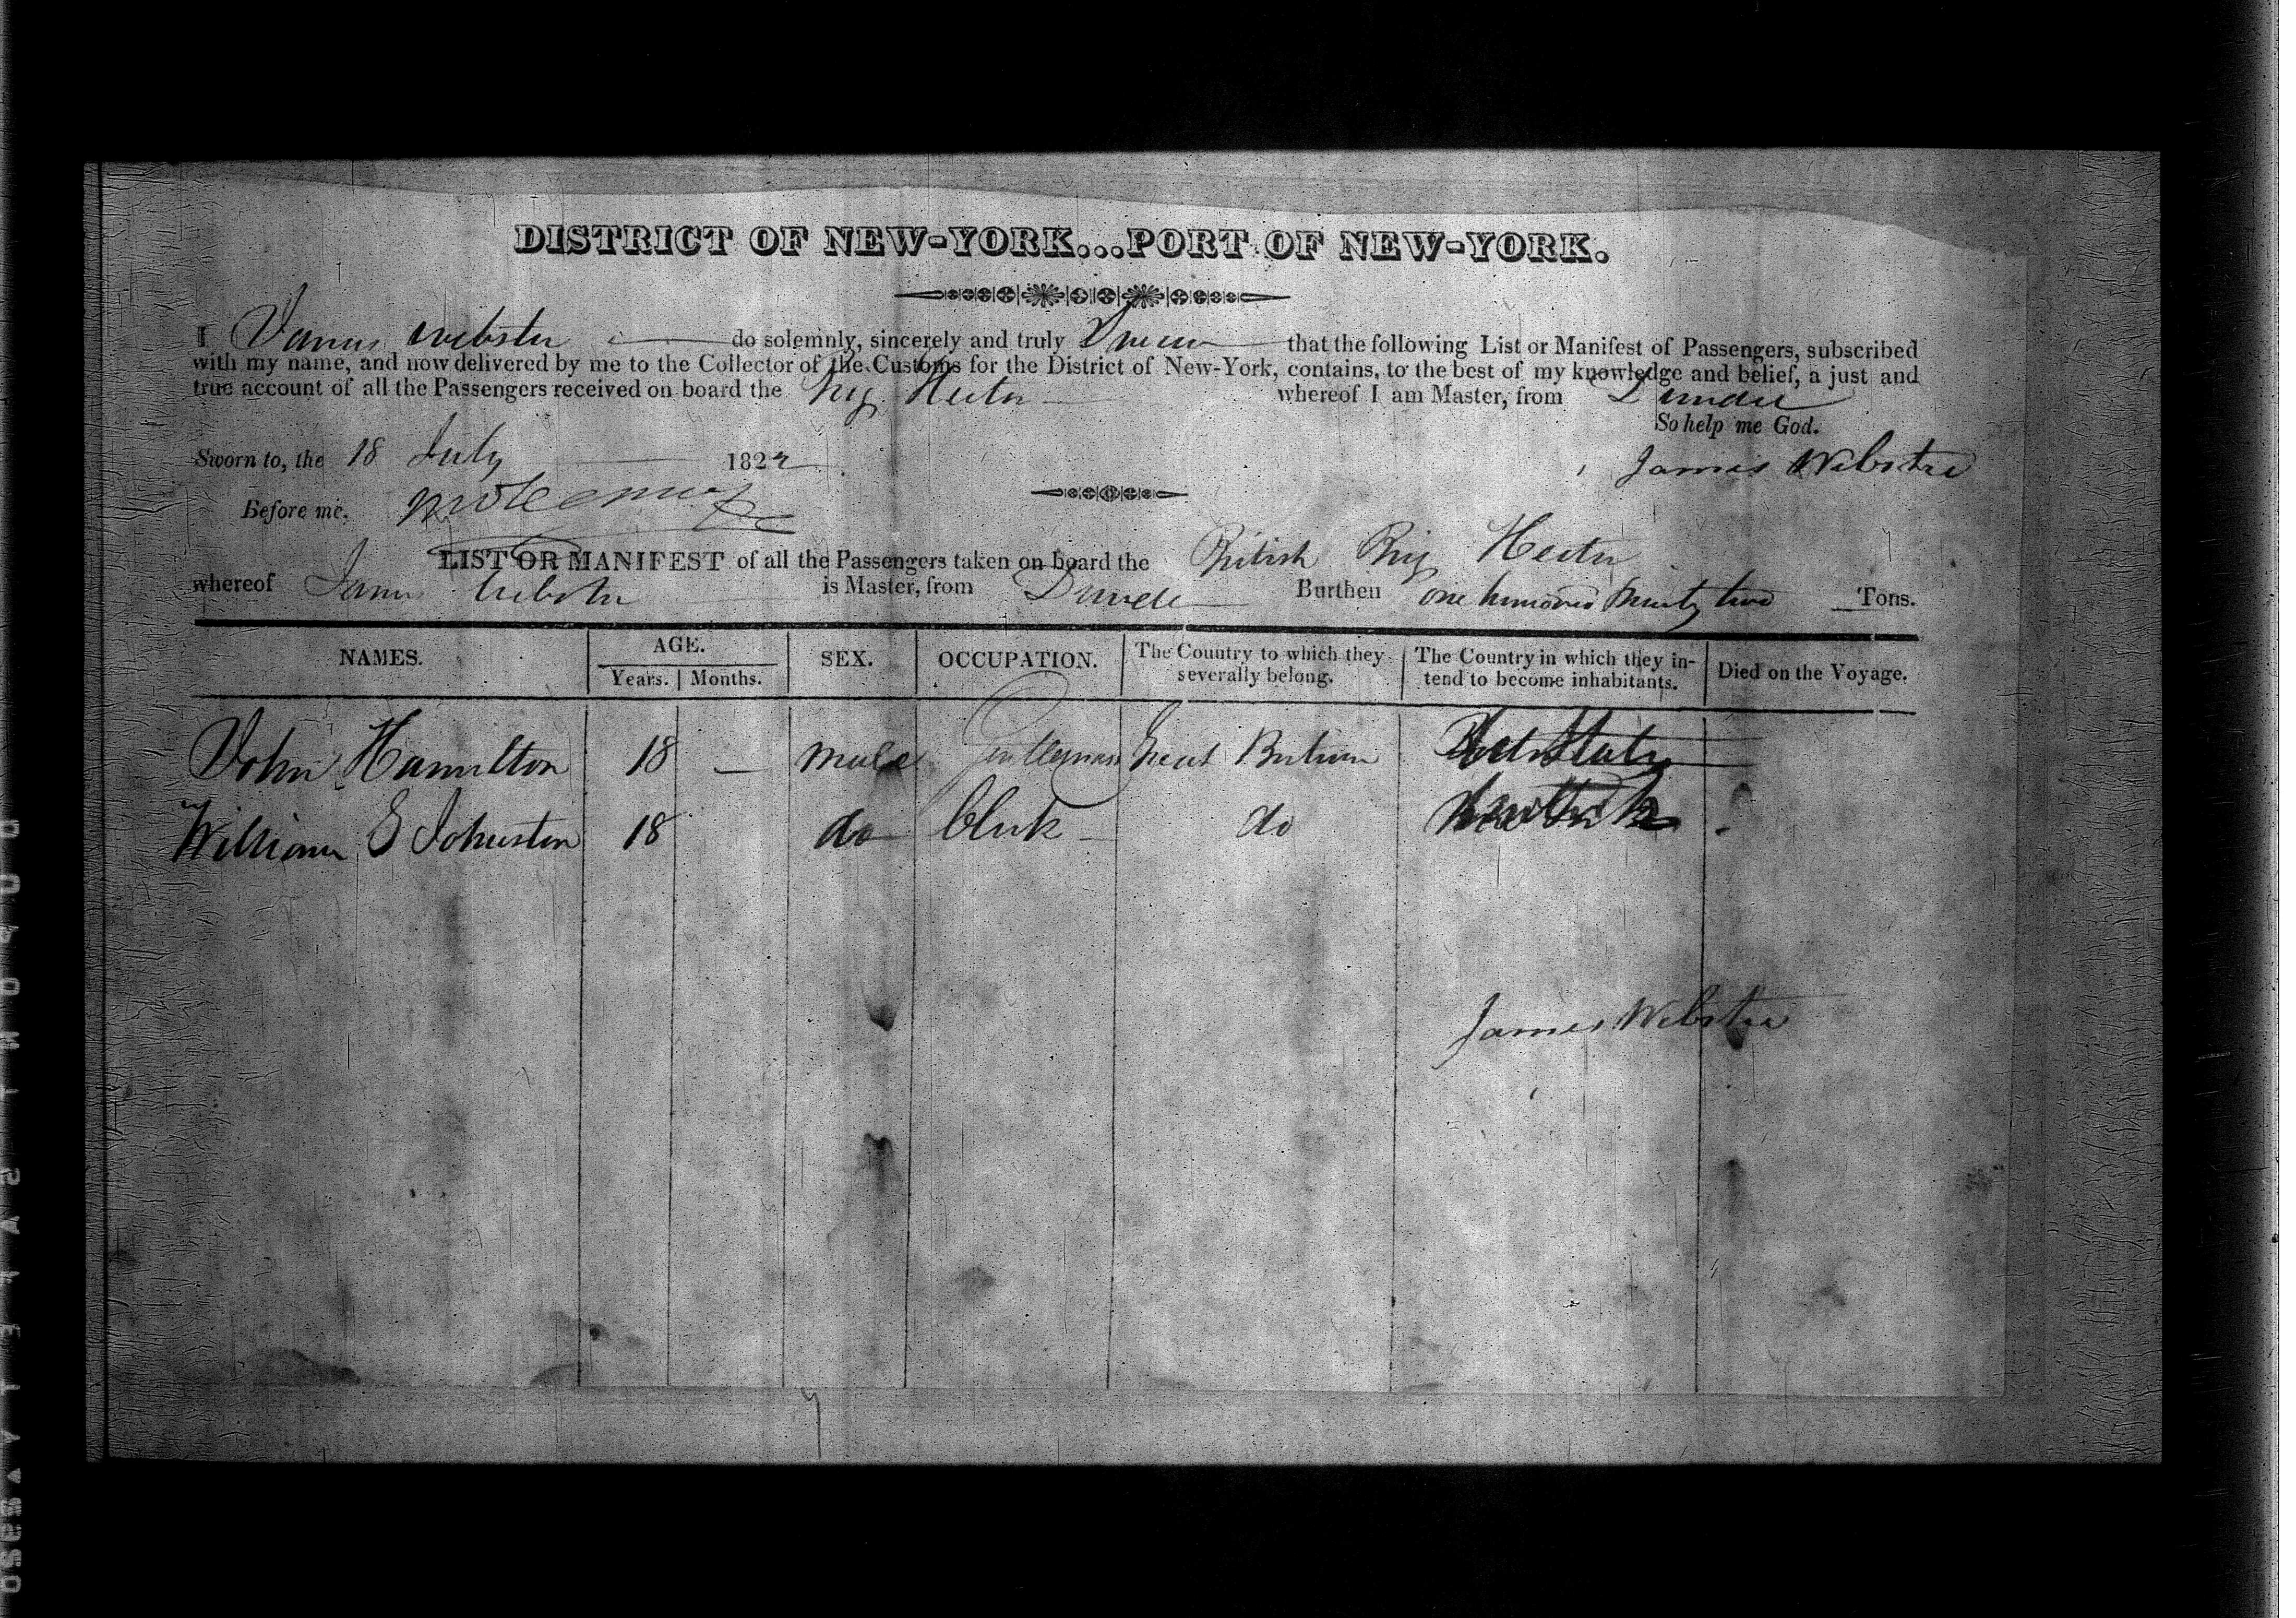 DISTRICT OF NEW-YORK...PORT OF NEW-YORK.
I James Webster do solemnly, sincerely and truly Swear that the following List or Manifest of Passengers, subscribed
with my name, and now delivered by me to the Collector of the Customs for the District of New-York, contains, to the best of my knowledge and belief, a just and
true account of all the Passengers received on board the Brig Hector whereof I am Master, from Dundee
So help me God.
Sworn to, the 18 July 1822
James Webster
Before me.
LIST OR MANIFEST of all the Passengers taken on board the British Brig Hector
whereof James Webster is Master, from Dundee Burthen one hundred Ninety two Tons.
NAMES. AGE. Years. Months. SEX. OCCUPATION. The Country to which they severally belong. The Country in which they intend to become inhabitants. Died on the Voyage.
John Hamilton 18 — male Gentleman Great Britain
William S Johnston 18 do Clerk do
James Webster